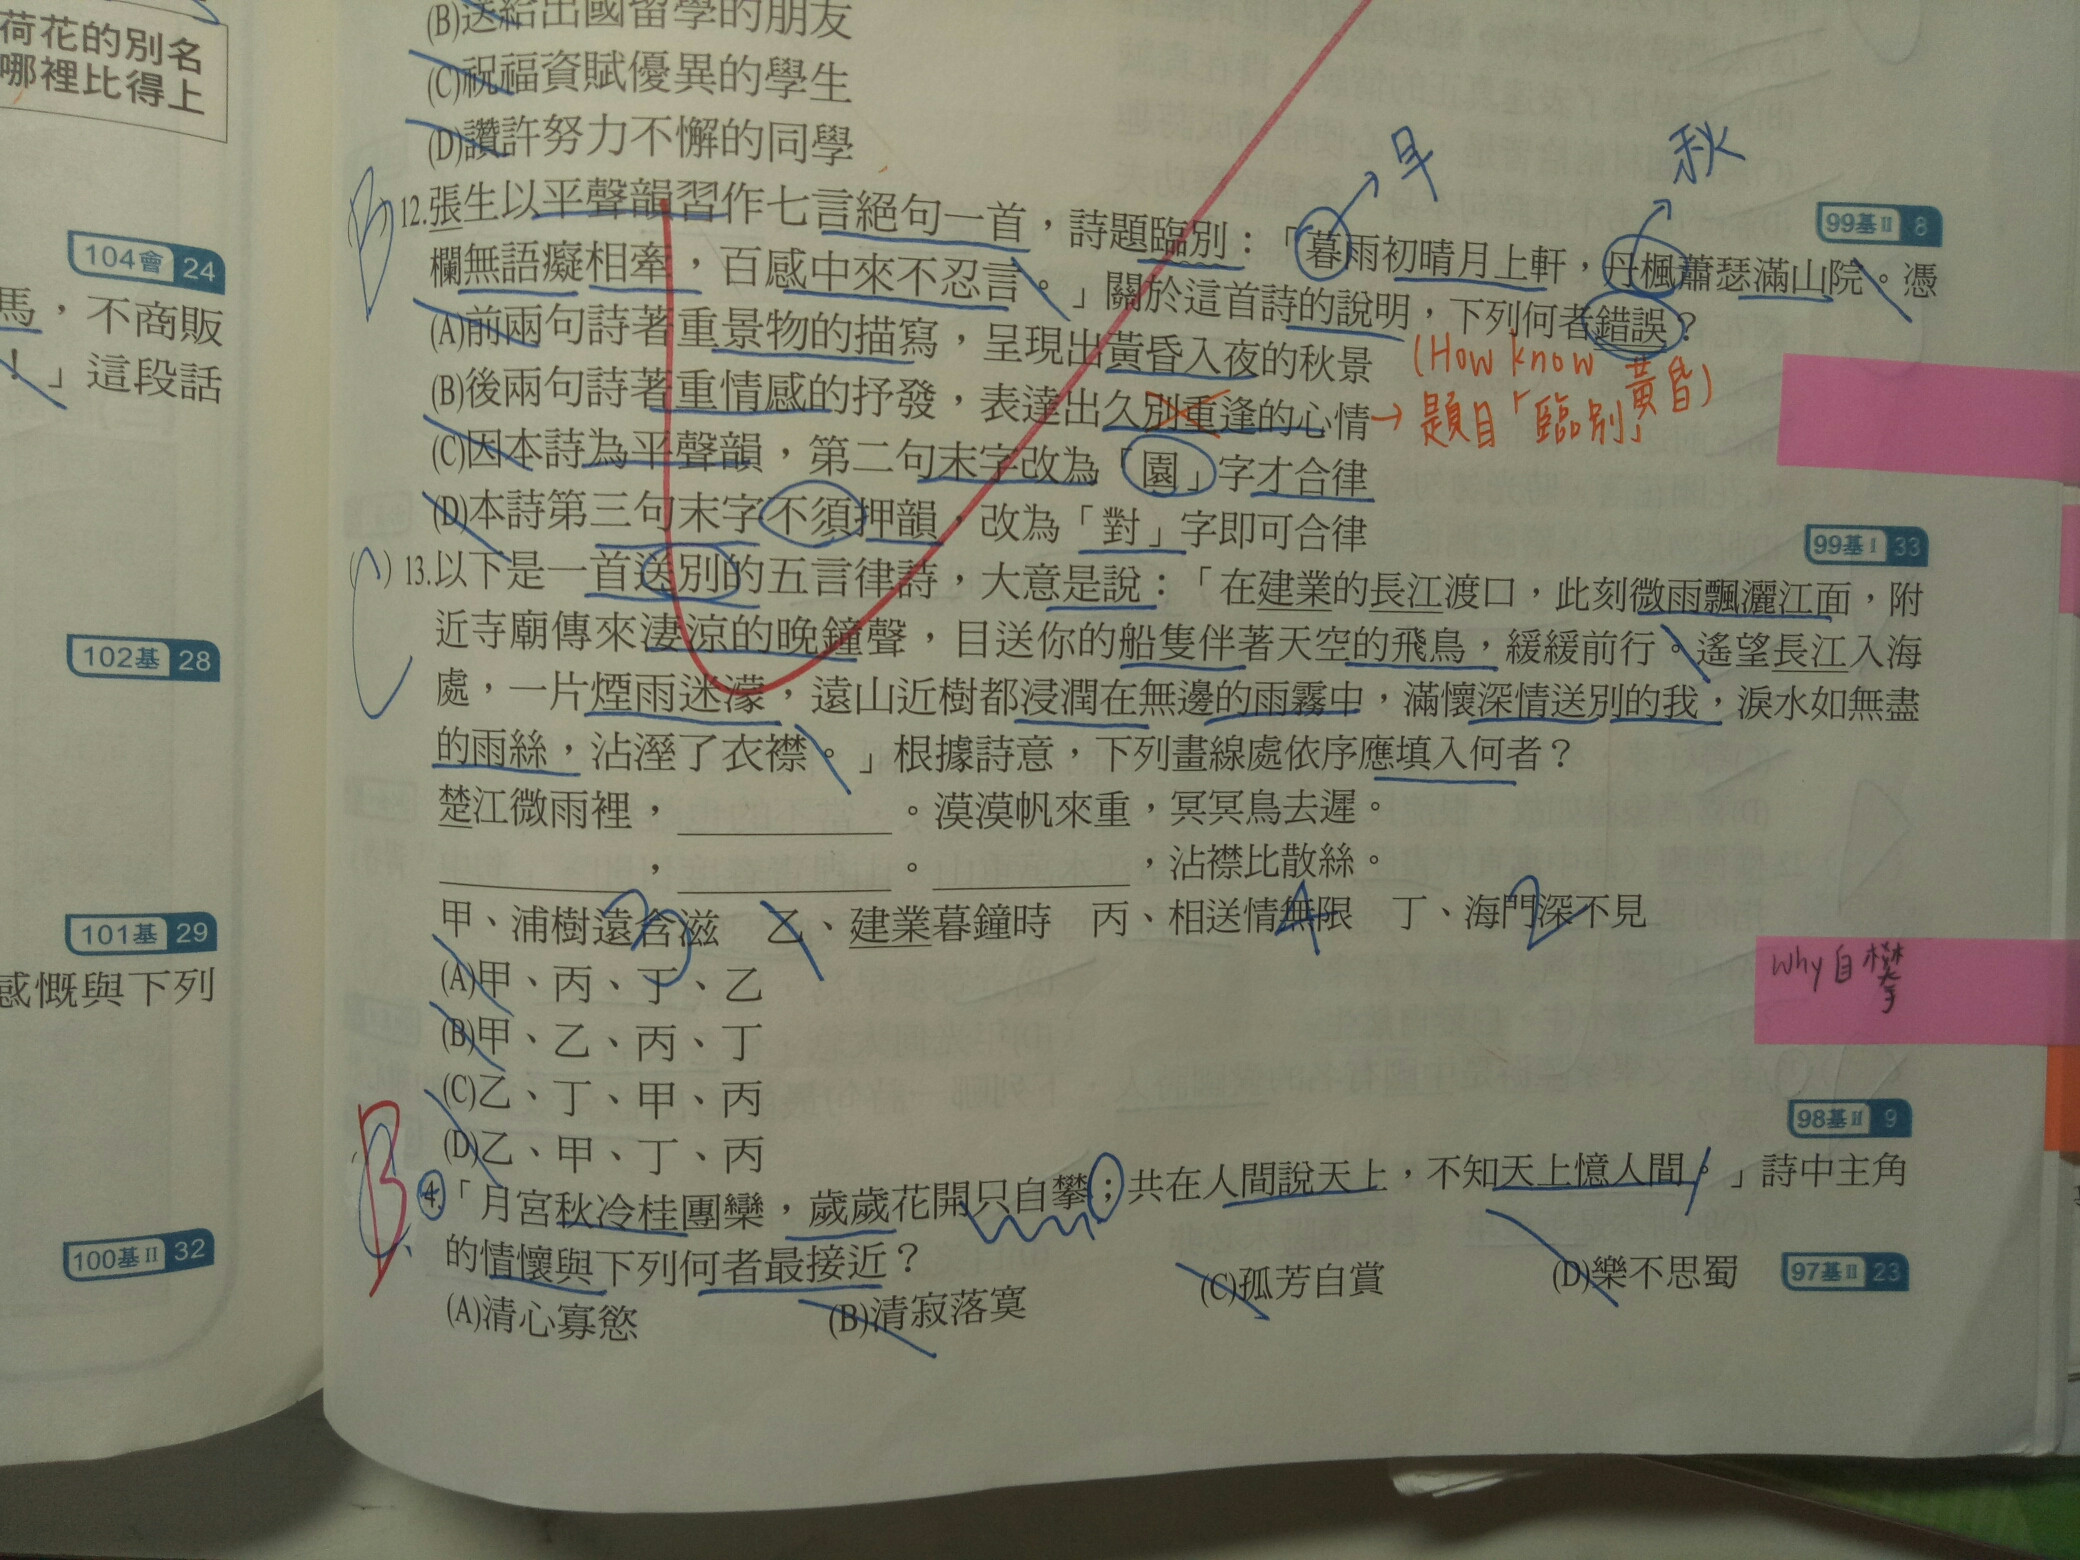 荷花的別名
哪裡比得上
104會 24
馬，不商販
！」這段話
102基 28
101基 29
感慨與下列
100基Ⅱ 32
(B)送給出國留學的朋友
(C)祝福資賦優異的學生
(D)讚許努力不懈的同學
早
秋
99基Ⅱ 8
B
12.張生以平聲韻習作七言絕句一首，詩題臨別：「暮雨初晴月上軒，丹楓蕭瑟滿山院。憑
欄無語癡相牽，百感中來不忍言。」關於這首詩的說明，下列何者錯誤？
(A)前兩句詩著重景物的描寫，呈現出黃昏入夜的秋景
(How know 黃昏)
(B)後兩句詩著重情感的抒發，表達出久別重逢的心情
→題目「臨別」
(C)因本詩為平聲韻，第二句末字改為「園」字才合律
(D)本詩第三句末字不須押韻，改為「對」字即可合律
99基Ⅰ 33
C
( )13.以下是一首送別的五言律詩，大意是說：「在建業的長江渡口，此刻微雨飄灑江面，附
近寺廟傳來淒涼的晚鐘聲，目送你的船隻伴著天空的飛鳥，緩緩前行。遙望長江入海
處，一片煙雨迷濛，遠山近樹都浸潤在無邊的雨霧中，滿懷深情送別的我，淚水如無盡
的雨絲，沾溼了衣襟。」根據詩意，下列畫線處依序應填入何者？
楚江微雨裡，＿＿＿＿＿。漠漠帆來重，冥冥鳥去遲。
＿＿＿＿＿，＿＿＿＿＿。＿＿＿＿＿，沾襟比散絲。
甲、浦樹遠含滋　乙、建業暮鐘時　丙、相送情無限　丁、海門深不見
3 1 4 2
(A)甲、丙、丁、乙
(B)甲、乙、丙、丁
(C)乙、丁、甲、丙
(D)乙、甲、丁、丙
Why自攀
98基Ⅱ 9
B
4.「月宮秋冷桂團欒，歲歲花開只自攀；共在人間說天上，不知天上憶人間。」詩中主角
的情懷與下列何者最接近？
(A)清心寡慾　(B)清寂落寞　(C)孤芳自賞　(D)樂不思蜀
97基Ⅱ 23